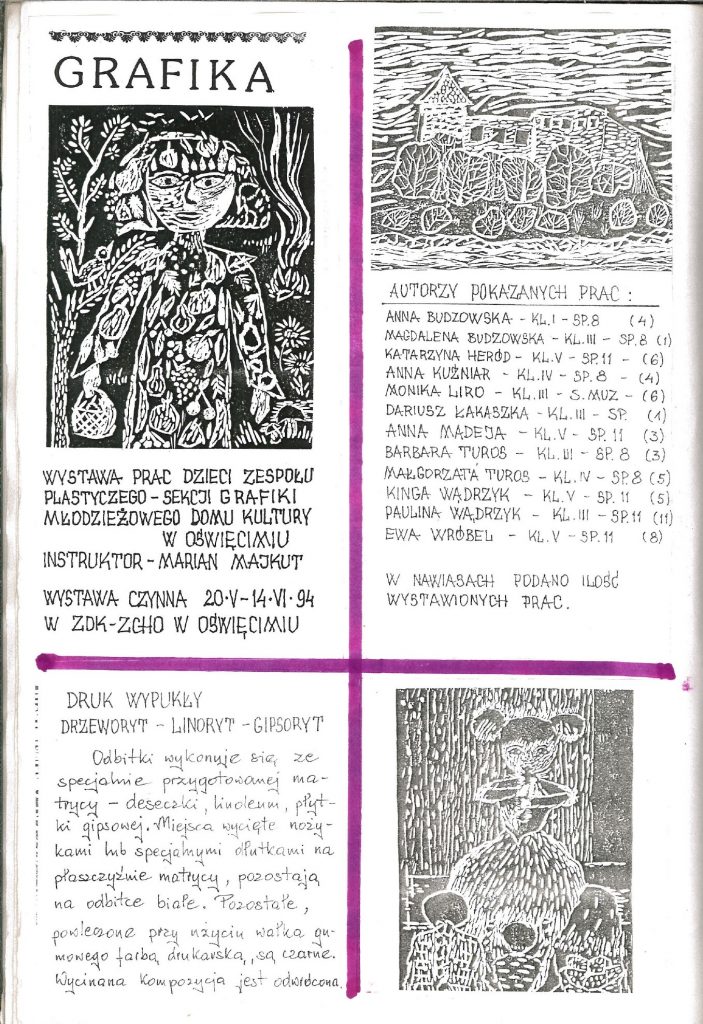 GRAFIKA
WYSTAWA PRAC DZIECI ZESPOŁU
PLASTYCZEGO - SEKCJI GRAFIKI
MŁODZIEŻOWEGO DOMU KULTURY
W OŚWIĘCIMIU
INSTRUKTOR - MARIAN MAJKUT
WYSTAWA CZYNNA 20·V-14·VI·94
W ZDK-ZCHO W OŚWIĘCIMIU
AUTORZY POKAZANYCH PRAC :
ANNA BUDZOWSKA - KL.I - SP.8 (4)
MAGDALENA BUDZOWSKA - KL.III - SP.8 (1)
KATARZYNA HERÓD - KL.V - SP.11 - (6)
ANNA KUŹNIAR - KL.IV - SP.8 - (4)
MONIKA LIRO - KL.III - S.MUZ - (6)
DARIUSZ ŁAKASZKA - KL.III - SP. (1)
ANNA MADEJA - KL.V - SP.11 (3)
BARBARA TUROS - KL.III - SP.8 (3)
MAŁGORZATA TUROS - KL.IV - SP.8 (5)
KINGA WĄDRZYK - KL.V - SP.11 (5)
PAULINA WĄDRZYK - KL.III - SP.11 (11)
EWA WRÓBEL - KL.V - SP.11 (8)
W NAWIASACH PODANO ILOŚĆ
WYSTAWIONYCH PRAC.
DRUK WYPUKŁY
DRZEWORYT - LINORYT - GIPSORYT
Odbitki wykonuje się ze
specjalnie przygotowanej ma-
trycy - deseczki, linoleum, płyt-
ki gipsowej. Miejsca wycięte noży-
kami lub specjalnymi dłutkami na
płaszczyźnie matrycy, pozostają
na odbitce białe. Pozostałe,
powleczone przy użyciu wałka gu-
mowego farbą drukarską, są czarne.
Wycinana kompozycja jest odwrócona.